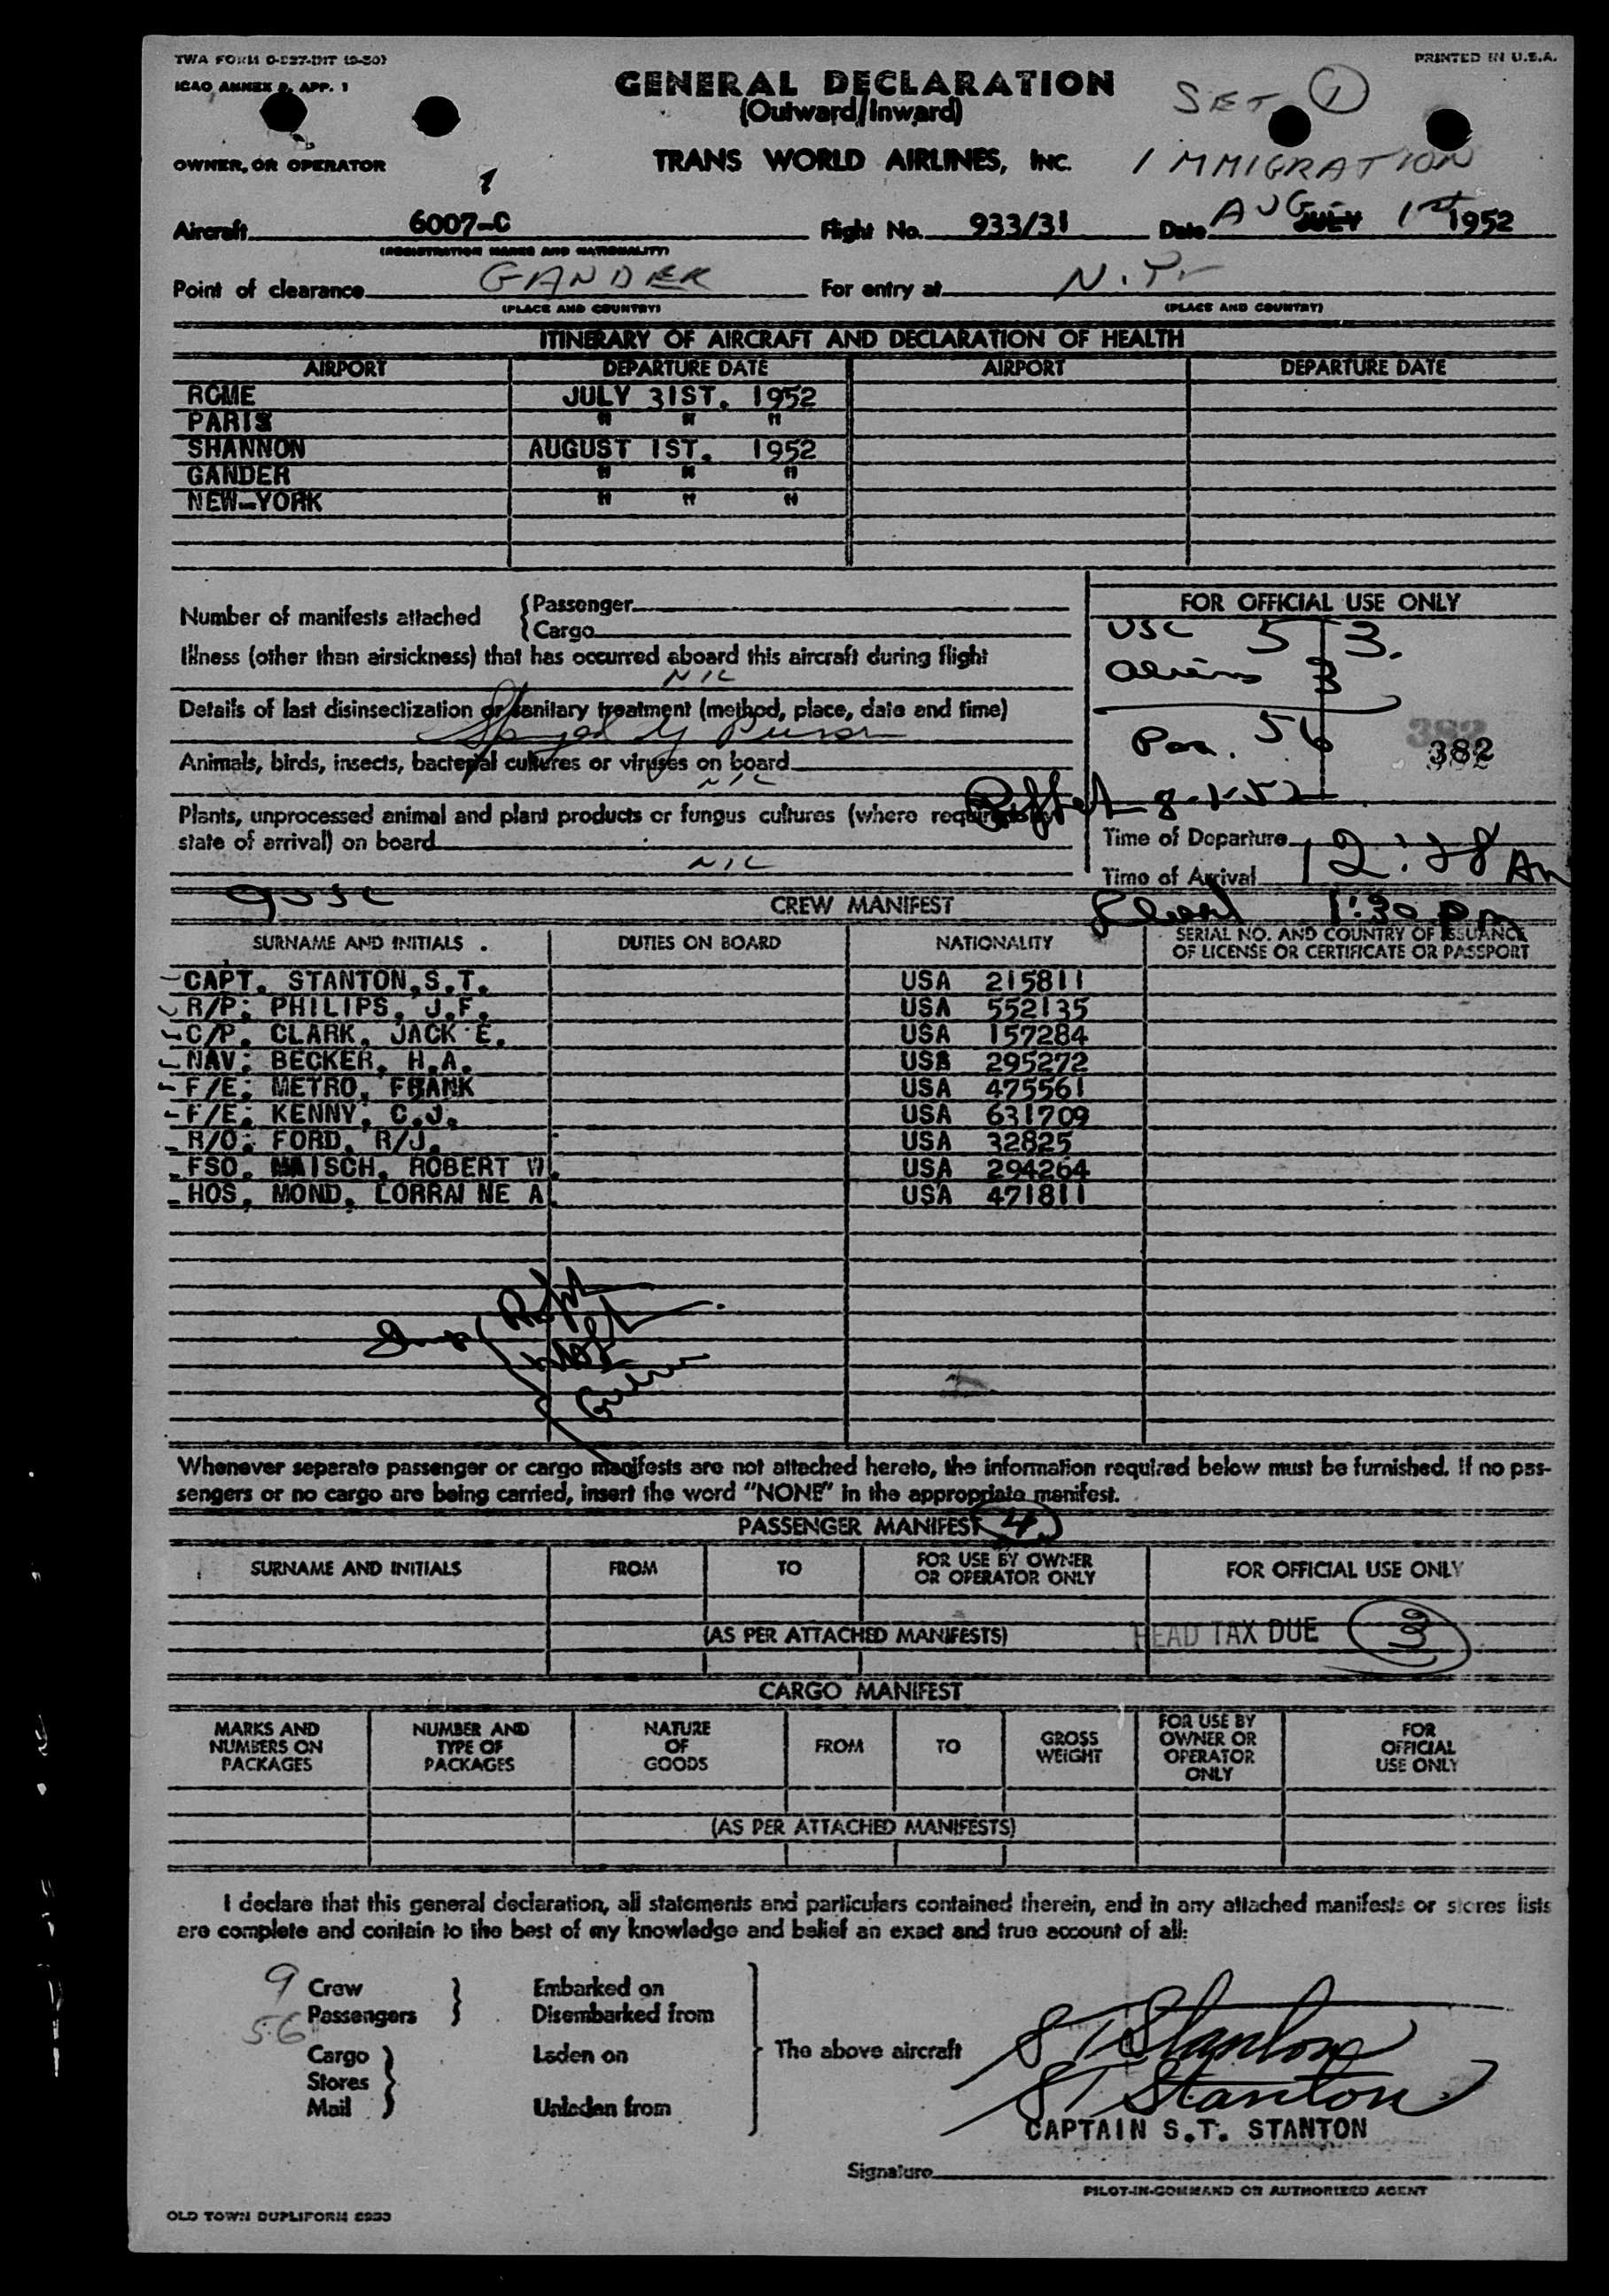 TWA FORM 0-527-INT (9-50)
PRINTED IN U.S.A.
ICAO ANNEX 9, APP. 1
GENERAL DECLARATION
(Outward/Inward)
SET 1
OWNER, OR OPERATOR
TRANS WORLD AIRLINES, INC.
IMMIGRATION
Aircraft 6007-C Flight No. 933/31 Date AUG JULY 1st 1952
(REGISTRATION MARKS AND NATIONALITY)
Point of clearance GANDER For entry at N.Y.
(PLACE AND COUNTRY) (PLACE AND COUNTRY)
ITINERARY OF AIRCRAFT AND DECLARATION OF HEALTH
AIRPORT DEPARTURE DATE AIRPORT DEPARTURE DATE
ROME JULY 31ST. 1952
PARIS " " "
SHANNON AUGUST 1ST. 1952
GANDER " " "
NEW-YORK " " "
Number of manifests attached { Passenger
{ Cargo
FOR OFFICIAL USE ONLY
USC 53.
Aliens 3
Pas. 56
382
382
8-1-52
Illness (other than airsickness) that has occurred aboard this aircraft during flight
NIL
Details of last disinsectization or sanitary treatment (method, place, date and time)
Animals, birds, insects, bacterial cultures or viruses on board
NIL
Plants, unprocessed animal and plant products or fungus cultures (where required by
state of arrival) on board
NIL
Time of Departure
Time of Arrival 12:28 AM
1:30 PM
9 USC
CREW MANIFEST
SURNAME AND INITIALS DUTIES ON BOARD NATIONALITY SERIAL NO. AND COUNTRY OF ISSUANCE
OF LICENSE OR CERTIFICATE OR PASSPORT
CAPT. STANTON,S.T. USA 215811
R/P: PHILIPS, J.F. USA 552135
C/P. CLARK, JACK E. USA 157284
NAV: BECKER, H.A. USA 295272
F/E: METRO, FRANK USA 475561
F/E: KENNY, C.J. USA 631709
R/O: FORD, R/J. USA 32825
FSO. MAISCH, ROBERT W. USA 294264
HOS, MOND, LORRAINE A. USA 471811
Whenever separate passenger or cargo manifests are not attached hereto, the information required below must be furnished. If no pas-
sengers or no cargo are being carried, insert the word "NONE" in the appropriate manifest.
PASSENGER MANIFEST 4
SURNAME AND INITIALS FROM TO FOR USE BY OWNER
OR OPERATOR ONLY FOR OFFICIAL USE ONLY
(AS PER ATTACHED MANIFESTS) HEAD TAX DUE 3
CARGO MANIFEST
MARKS AND
NUMBERS ON
PACKAGES
NUMBER AND
TYPE OF
PACKAGES
NATURE
OF
GOODS
FROM
TO
GROSS
WEIGHT
FOR USE BY
OWNER OR
OPERATOR
ONLY
FOR
OFFICIAL
USE ONLY
(AS PER ATTACHED MANIFESTS)
I declare that this general declaration, all statements and particulars contained therein, and in any attached manifests or stores lists
are complete and contain to the best of my knowledge and belief an exact and true account of all:
9 Crew } Embarked on
56 Passengers } Disembarked from
Cargo } Laden on
Stores
Mail } Unladen from
The above aircraft
S T Stanton
S T Stanton
CAPTAIN S.T. STANTON
Signature
PILOT-IN-COMMAND OR AUTHORIZED AGENT
OLD TOWN DUPLIFORM